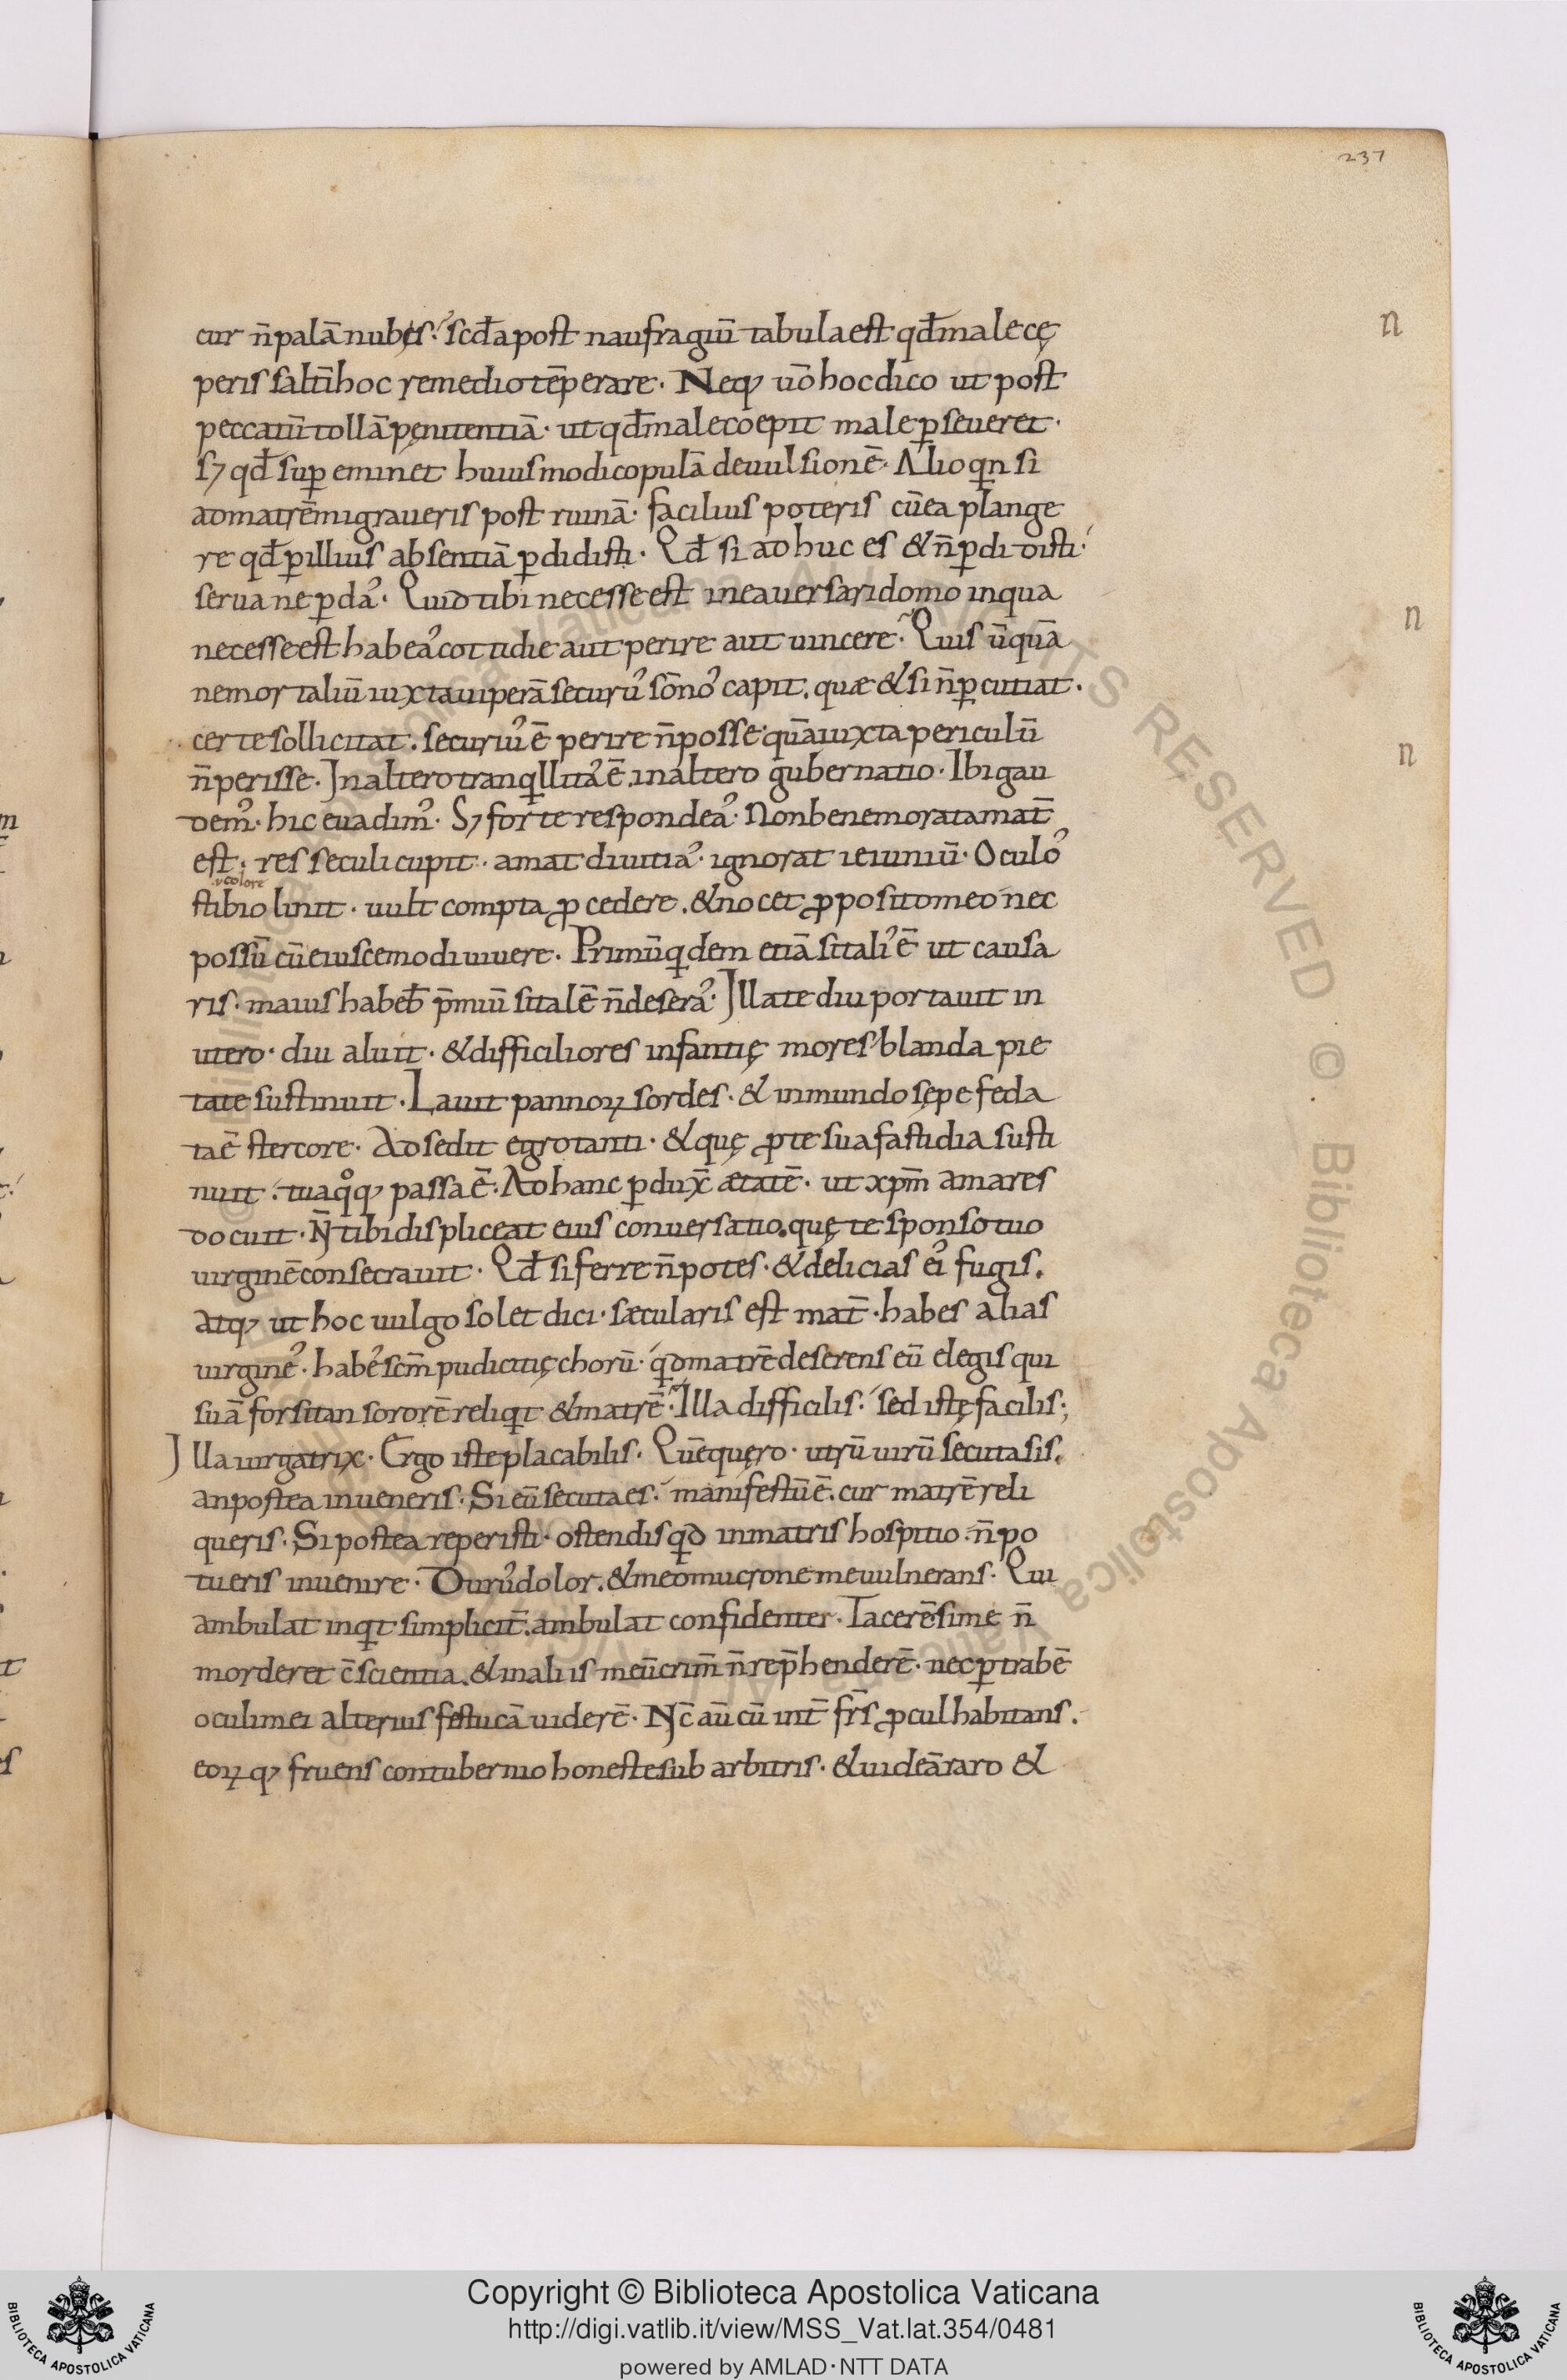 237
cur n̄ palā nubis. scd̄a post naufragiū tabula est qd̄ male cę
peris saltī hoc remedio tēperare. Neq; uō hoc dico ut post
peccatū tollā pęnitentiā. ut qd̄ male coepit male p̱seueret.
s; qd̄ sup̱eminet huiusmodi copulā deuulsionē. Alioqn si
ad matrē migraueris post ruinā. facilius poteris cū ea plange
re qd̄ p̱ illius absentiā p̱didisti. Qd̄ si adhuc es & n̄ p̱didisti.
serua ne p̱da᾿. Quid tibi necesse est in ea uersari domo in qua
necesse est habea᾿ cottidie aut perire aut uincere. Quis ūquā
n
nemortaliū iuxta uiperā securu᾿ sōno᾿ capit. quæ & si n̄ p̱cutiat.
certe sollicitat. securiu᾿ ē perire n̄ posse. quā iuxta periculū
n̄ perisse. In altero tranqllita᾿ ē. in altero gubernatio. Ibi gau
n
dem᾿. hic euadim᾿. S; forte respondea᾿. Non bene morata mat̄
est. res seculi cupit. amat diuitia᾿. ignorat ieiuniū. Oculo᾿
.i. colore
stibio linit. uult compta ꝓcedere. & nocet ꝓposito meo nec
possū cū eiuscemodi uiuere. Primū qdem etiā si tali᾿ ē ut causa
ris. maius habeb̄ p̄miū si talē n̄ desera᾿. Illa te diu portauit in
utero. diu aluit. & difficiliores infantię mores blanda pie
tate sustinuit. Lauit pannoꝝ sordes. & inmundo sępe feda
ta ē stercore. Adsedit egrotanti. & quę ꝓ te sua fastidia susti
nuit. tua qͦq; passa ē. Ad hanc p̱dux̄ ætatē. ut xpm̄ amares
docuit. N̄ tibi displiceat eius conuersatio. quę te sponso tuo
uirginē consecrauit. Qd̄ si ferre n̄ potes. & delicias ei᾿ fugis.
atq; ut hoc uulgo solet dici. sæcularis est mat̄. habes alias
uirgine᾿. habe᾿ scm̄ pudicitię chorū. qd matrē deserens eū elegis qui
suā forsitan sororē reliqt & matrē. Illa difficilis. sed istę facilis;
Illa iurgatrix. Ergo iste placabilis. Quē quęro. utrū uirū secuta sis.
an postea inueneris. Si eū secuta es. manifestū ē. cur matrē reli
queris. Si postea reperisti. ostendis qd in matris hospitio n̄ po
tueris inuenire. Duru᾿ dolor. & meo mucrone me uulnerans. Qui
ambulat inqt simplicit̄. ambulat confidenter. Tacerē si me n̄
morderet c̄scientia. & in aliis meū crim̄ n̄ rep̄henderē. nec p̱ trabē
oculi mei alterius festucā uiderē. Nc̄ aū cū int̄ fr̄s ꝓcul habitans.
eoꝝq; fruens contubernio honeste sub arbitris. & uideā raro &
n
Copyright © Biblioteca Apostolica Vaticana
http://digi.vatlib.it/view/MSS_Vat.lat.354/0481
powered by AMLAD·NTT DATA